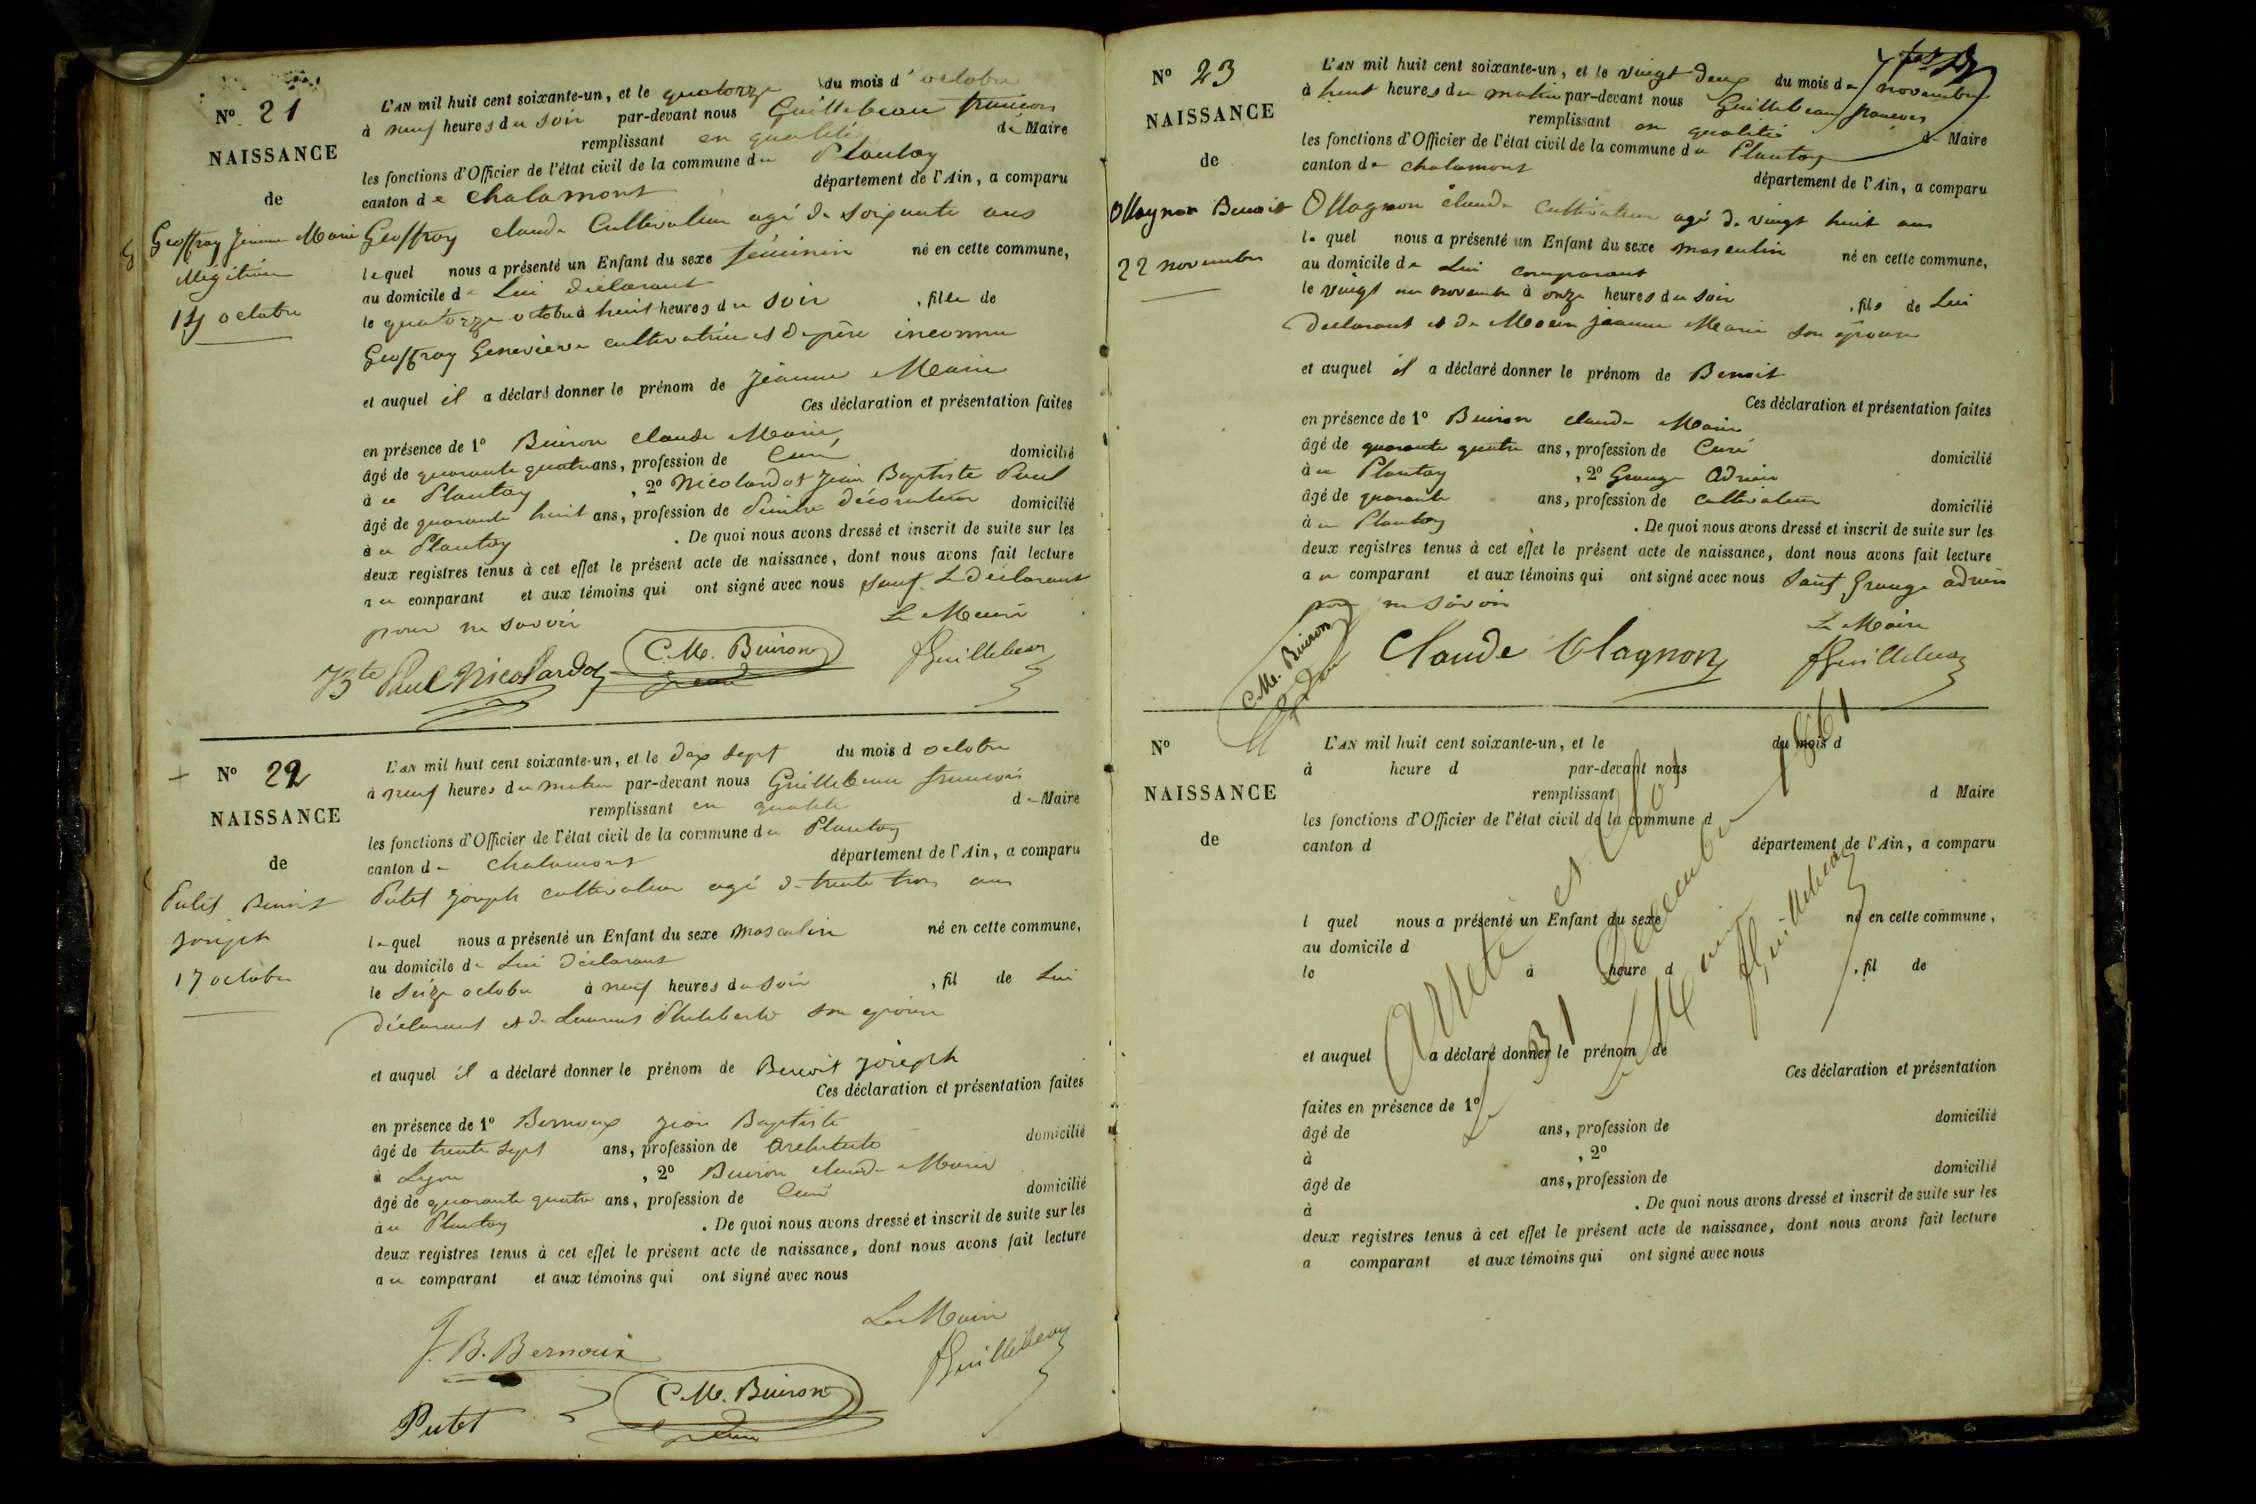 N° 21
NAISSANCE
de
Geoffray Jeanne Marie
illégitime
14 octobre
L'AN mil huit cent soixante-un, et le quatorze du mois d'octobre
à neuf heures du soir par-devant nous Guillebeau françois
remplissant en qualité de Maire
les fonctions d'Officier de l'état civil de la commune du Plantay
canton de Chalamont département de l'Ain, a comparu
Geoffray claude Cultivateur agé de soixante ans
lequel nous a présenté un Enfant du sexe féminin né en cette commune,
au domicile de Lui déclarant
le quatorze octobre à huit heures du soir , fille de
Geoffray Genevieve cultivatrice et de père inconnu
et auquel il a déclaré donner le prénom de Jeanne Marie
Ces déclaration et présentation faites
en présence de 1° Buiron claude Marie,
âgé de quarante quatre ans, profession de Curé domicilié
à au Plantay , 2° Nicolardot Jean Baptiste Paul
âgé de quarante huit ans, profession de Peintre décorateur domicilié
à au Plantay . De quoi nous avons dressé et inscrit de suite sur les
deux registres tenus à cet effet le présent acte de naissance, dont nous avons fait lecture
a u comparant et aux témoins qui ont signé avec nous sauf Le déclarant
pour ne savoir Le Maire
Bte Paul Nicolardot C.M. Buiron curé fGuillebeau
N° 22
NAISSANCE
de
Putet Benoit
Joseph
17 octobre
L'AN mil huit cent soixante-un, et le dix sept du mois d octobre
à neuf heures du matin par-devant nous Guillebeau francois
remplissant en qualité de Maire
les fonctions d'Officier de l'état civil de la commune du Plantay
canton de Chalamont département de l'Ain, a comparu
Putet Joseph cultivateur agé de trente trois ans
lequel nous a présenté un Enfant du sexe masculin né en cette commune,
au domicile de Lui déclarant
le seize octobre à neuf heures du soir , fil de Lui
déclarant et de Laurent Philiberte son épouse
et auquel il a déclaré donner le prénom de Benoit Joseph
Ces déclaration et présentation faites
en présence de 1° Bernoux Jean Baptiste
âgé de trente sept ans, profession de Architecte domicilié
à Lyon , 2° Buiron claude Marie
âgé de quarante quatre ans, profession de Curé domicilié
à au Plantay . De quoi nous avons dressé et inscrit de suite sur les
deux registres tenus à cet effet le présent acte de naissance, dont nous avons fait lecture
a u comparant et aux témoins qui ont signé avec nous
Le Maire
J. B. Bernoux fGuillebeau
Putet C.M. Buiron curé
N° 23
NAISSANCE
de
Ollagnon Benoit
22 novembre
L'AN mil huit cent soixante-un, et le vingt deux du mois de novembre
à huit heures du matin par-devant nous Guillebeau francois
remplissant en qualité de Maire
les fonctions d'Officier de l'état civil de la commune du Plantay
canton de chalamont département de l'Ain, a comparu
Ollagnon claude Cultivateur agé de vingt huit ans
lequel nous a présenté un Enfant du sexe masculin né en cette commune,
au domicile de Lui comparant
le vingt un novembre à onze heures du soir , fils de Lui
declarant et de Jeanne Marie son épouse
et auquel il a déclaré donner le prénom de Benoit
Ces déclaration et présentation faites
en présence de 1° Buiron claude Marie
âgé de quarante quatre ans, profession de Curé domicilié
à au Plantay , 2° Grange Adrien
âgé de quarante ans, profession de cultivateur domicilié
à au Plantay . De quoi nous avons dressé et inscrit de suite sur les
deux registres tenus à cet effet le présent acte de naissance, dont nous avons fait lecture
a u comparant et aux témoins qui ont signé avec nous Sauf Grange adrien
pour ne savoir Le Maire
C.M. Buiron Claude Olagnon fGuillebeau
N°
NAISSANCE
de
L'AN mil huit cent soixante-un, et le du mois d
à heure d par-devant nous
remplissant d Maire
les fonctions d'Officier de l'état civil de la commune d
canton d département de l'Ain, a comparu
l quel nous a présenté un Enfant du sexe né en cette commune,
au domicile d
le à heure d , fil de
et auquel a déclaré donner le prénom de
Ces déclaration et présentation
faites en présence de 1°
âgé de ans, profession de domicilié
à , 2°
âgé de ans, profession de domicilié
à . De quoi nous avons dressé et inscrit de suite sur les
deux registres tenus à cet effet le présent acte de naissance, dont nous avons fait lecture
a comparant et aux témoins qui ont signé avec nous
Arrêté et Clos
Le 31 Decembre 1861
Le Maire
fGuillebeau